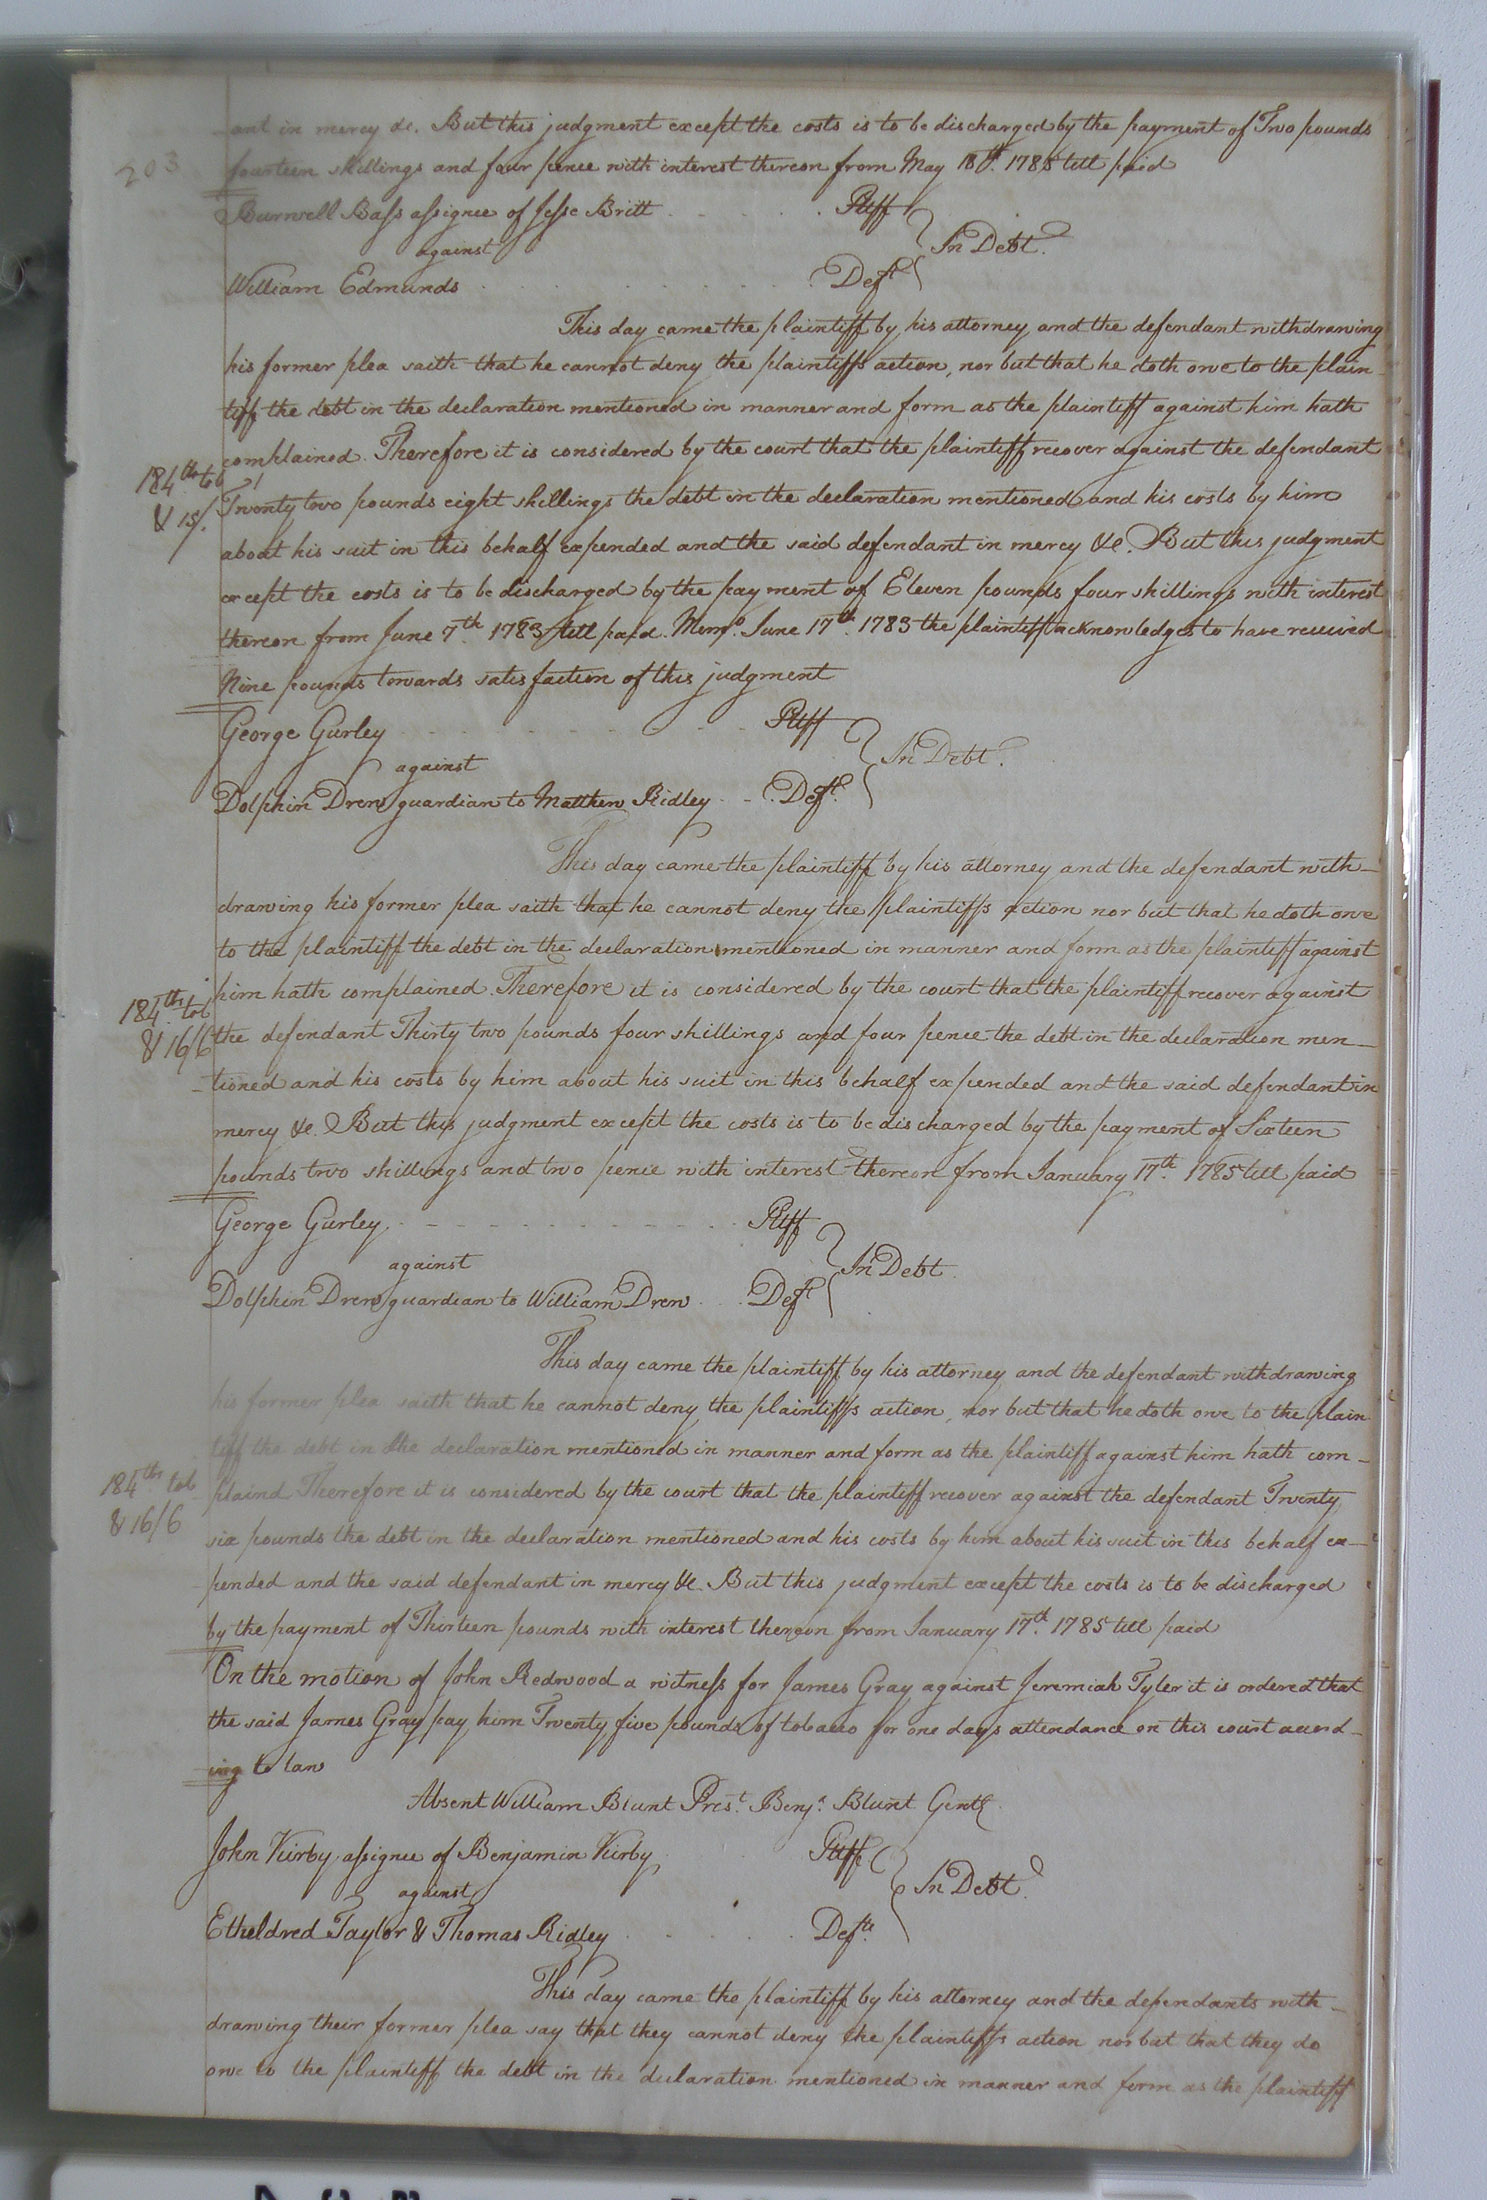 203
-ant in mercy &c. But this judgment except the costs is to be discharged by the payment of Two pounds
fourteen shillings and four pence with interest thereon from May 18th. 1785 till paid
Burwell Bass assignee of Jesse Britt Pltff
against
In Debt.
William Edmunds Deft.
This day came the plaintiff by his attorney and the defendant withdrawing
his former plea saith that he cannot deny the plaintiffs action, nor but that he doth owe to the plain-
tiff the debt in the declaration mentioned in manner and form as the plaintiff against him hath
complained. Therefore it is considered by the court that the plaintiff recover against the defendant
184th tob
& 15/.
Twenty two pounds eight shillings the debt in the declaration mentioned and his costs by him
about his suit in this behalf expended and the said defendant in mercy &c. But this judgment
except the costs is to be discharged by the payment of Eleven pounds four shillings with interest
thereon from June 7th. 1783 till paid. Memo. June 17th. 1783 the plaintiff acknowledges to have received
Nine pounds towards satisfaction of this judgment
George Gurley Pltff
against
In Debt.
Dolphin Drew guardian to Matthew Ridley Deft.
This day came the plaintiff by his attorney and the defendant with-
drawing his former plea saith that he cannot deny the plaintiffs action nor but that he doth owe
to the plaintiff the debt in the declaration mentioned in manner and form as the plaintiff against
him hath complained. Therefore it is considered by the court that the plaintiff recover against
184th tob
& 16/6
the defendant Thirty two pounds four shillings and four pence the debt in the declaration men-
-tioned and his costs by him about his suit in this behalf expended and the said defendant in
mercy &c. But this judgment except the costs is to be discharged by the payment of Sixteen
pounds two shillings and two pence with interest thereon from January 17th. 1785 till paid
George Gurley. Pltff
against
In Debt.
Dolphin Drew guardian to William Drew Deft
This day came the plaintiff by his attorney and the defendant withdrawing
his former plea saith that he cannot deny the plaintiffs action, nor but that he doth owe to the plain
tiff the debt in the declaration mentioned in manner and form as the plaintiff against him hath com-
184th tob
& 16/6
plaind Therefore it is considered by the court that the plaintiff recover against the defendant Twenty
six pounds the debt in the declaration mentioned and his costs by him about his suit in this behalf ex-
-pended and the said defendant in mercy &c. But this judgment except the costs is to be discharged
by the payment of Thirteen pounds with interest thereon from January 17th. 1785 till paid
On the motion of John Redwood a witness for James Gray against Jeremiah Tyler it is ordered that
the said James Gray pay him Twenty five pounds of tobacco for one days attendance on this court accord-
-ing to law
Absent William Blunt Prest. Benja. Blunt Gentl.
John Kirby assignee of Benjamin Kirby Pltff
against
In Debt.
Etheldred Taylor & Thomas Ridley Defts.
This day came the plaintiff by his attorney and the defendants with-
drawing their former plea say that they cannot deny the plaintiffs action nor but that they do
owe to the plaintiff the debt in the declaration mentioned in manner and form as the plaintiff